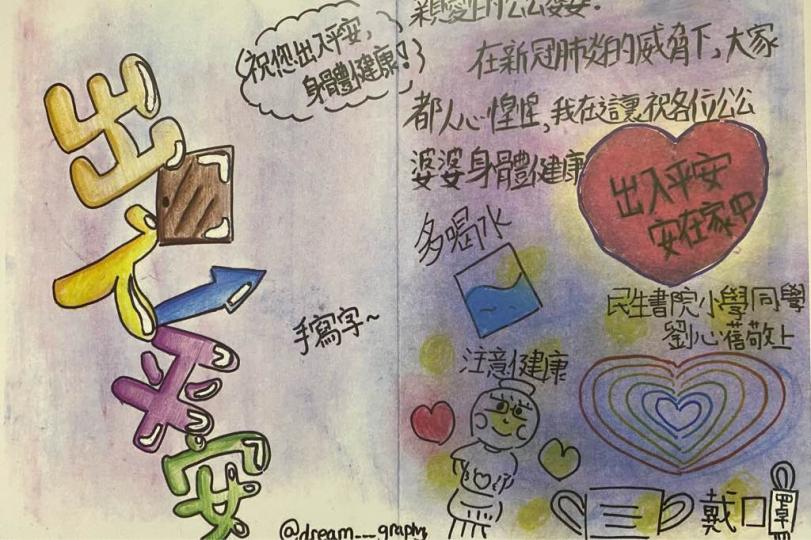 出入平安
祝您出入平安,
身體健康!
手寫字~
@dream___graphy
親愛的公公婆婆:
在新冠肺炎的威脅下,大家
都人心惶惶,我在這讓祝各位公公
婆婆身體健康
出入平安
安在家中
多喝水
民生書院小學同學
劉心蓓敬上
注意健康
戴口罩